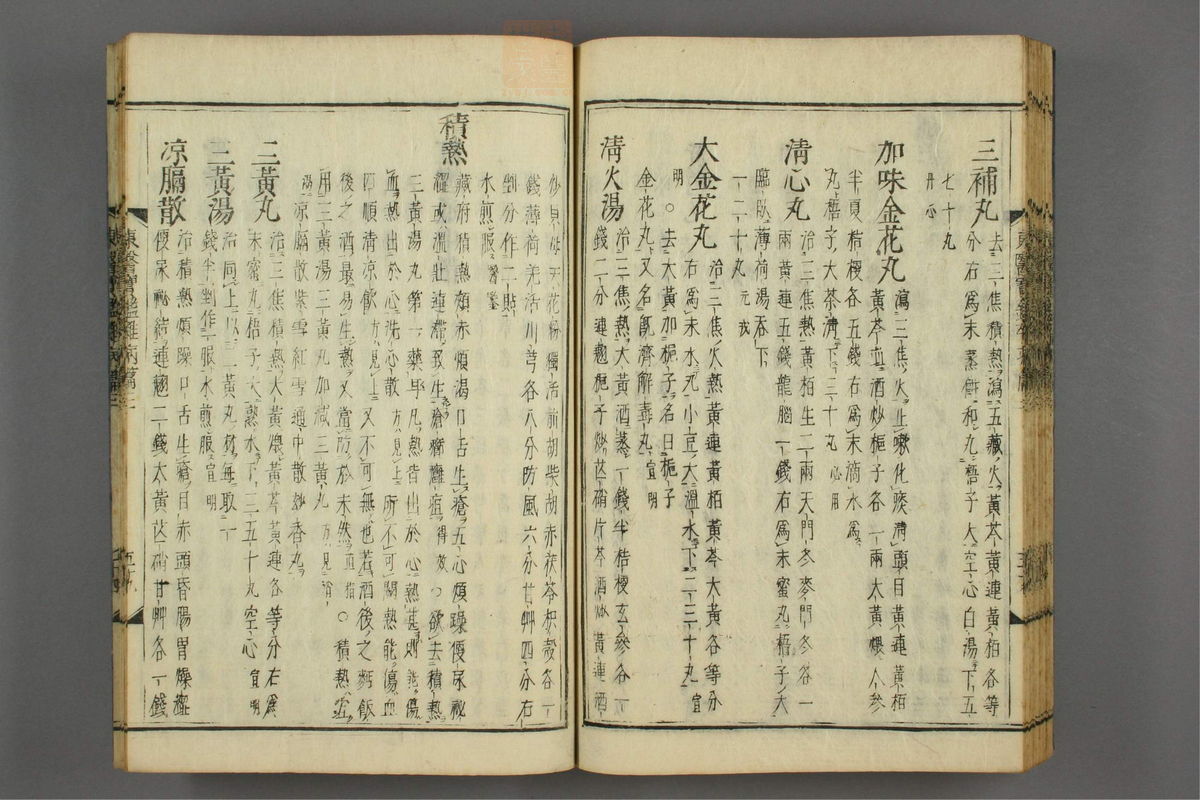 三補丸 去三焦積熱瀉五藏火黃芩黃連黃栢各等
分右爲末蒸餠和丸梧子大空心白湯下五
七十丸
丹心
加味金花丸 瀉三焦火止嗽化痰淸頭目黃連黃栢
黃芩並酒炒梔子各一兩大黃煨人參
半夏桔梗各五錢右爲末滴水爲
丸梧子大茶淸下三十丸 心用
淸心丸 治三焦熱黃栢生二兩天門冬麥門冬各一
兩黃連五錢龍腦一錢右爲末蜜丸梧子大
臨臥薄荷湯吞下
一二十丸 元戎
大金花丸 治三焦火熱黃連黃栢黃芩大黃各等分
右爲末水丸小豆大溫水下二三十丸 宣
明○去大黃加梔子名曰梔子
金花丸又名旣濟解毒丸 宣明
淸火湯 治三焦熱大黃酒蒸一錢半桔梗玄參各一
錢二分連翹梔子炒芒硝片芩酒炒黃連酒
炒貝母天花粉獨活前胡柴胡赤茯苓枳殼各一
錢薄荷羌活川芎各八分防風六分甘艸四分右
剉分作二貼
水煎服 醫鑒
積熱 藏府積熱頰赤煩渴口舌生瘡五心煩躁便尿祕
澀或溫壯連滯致生瘡癤癰疽 得效 ○欲去積熱
三黃湯丸第一藥耳凡熱皆出於心熱甚則能傷
血熱出於心洗心散 方見上 所不可闕熱能傷血
四順淸凉飮 方見上 又不可無也若酒後之麪飯
後之酒最易生熱又當防於未然 直指 ○積熱宜
用三黃湯三黃丸加減三黃丸 方見消渴
凉膈散紫雪紅雪通中散妙香丸
三黃丸 治三焦積熱大黃煨黃芩黃連各等分右爲
末蜜丸梧子大熟水下三五十丸空心 宣明
三黃湯 治同上以三黃丸材每取一
錢半剉作一服水煎服 宣明
凉膈散 治積熱煩躁口舌生瘡目赤頭昏腸胃燥澀
便尿祕結連翹二錢大黃芒硝甘艸各一錢